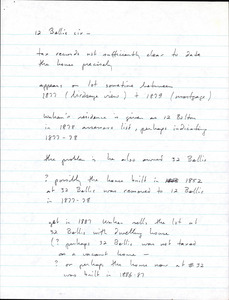 12 Bellis cir -
tax records not sufficiently clear to date
the house precisely
appears on lot sometime between
1877 (birdseye view) + 1879 (mortgage)
residence is given as 12 Bolton
in 1878 assessors list, perhaps indicating
1877-78
the problem is he also owned 32 Bellis
? possibly the house built in 1882
at 32 Bellis was removed to 12 Bellis
in 1877-78
yet in 1887 sells the lot at
32 Bellis with dwelling house
(? perhaps 32 Bellis was not taxed
as a vacant house -
? or perhaps the house now at #32
was built in 1886-87